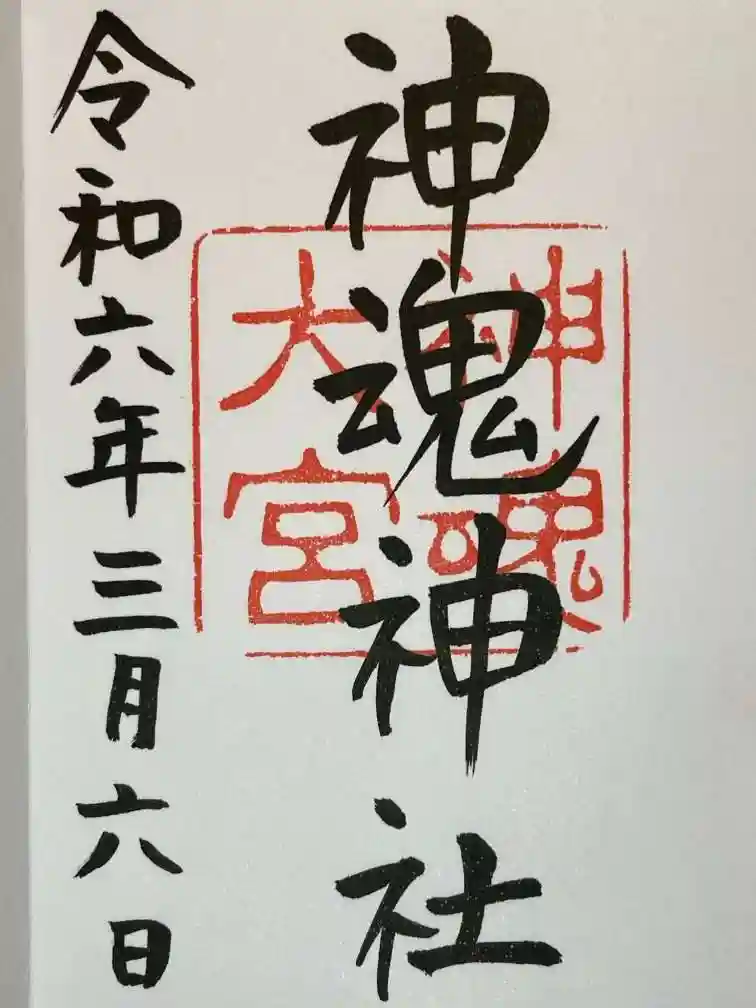 神魂神社
神魂
大宮
令和六年三月六日